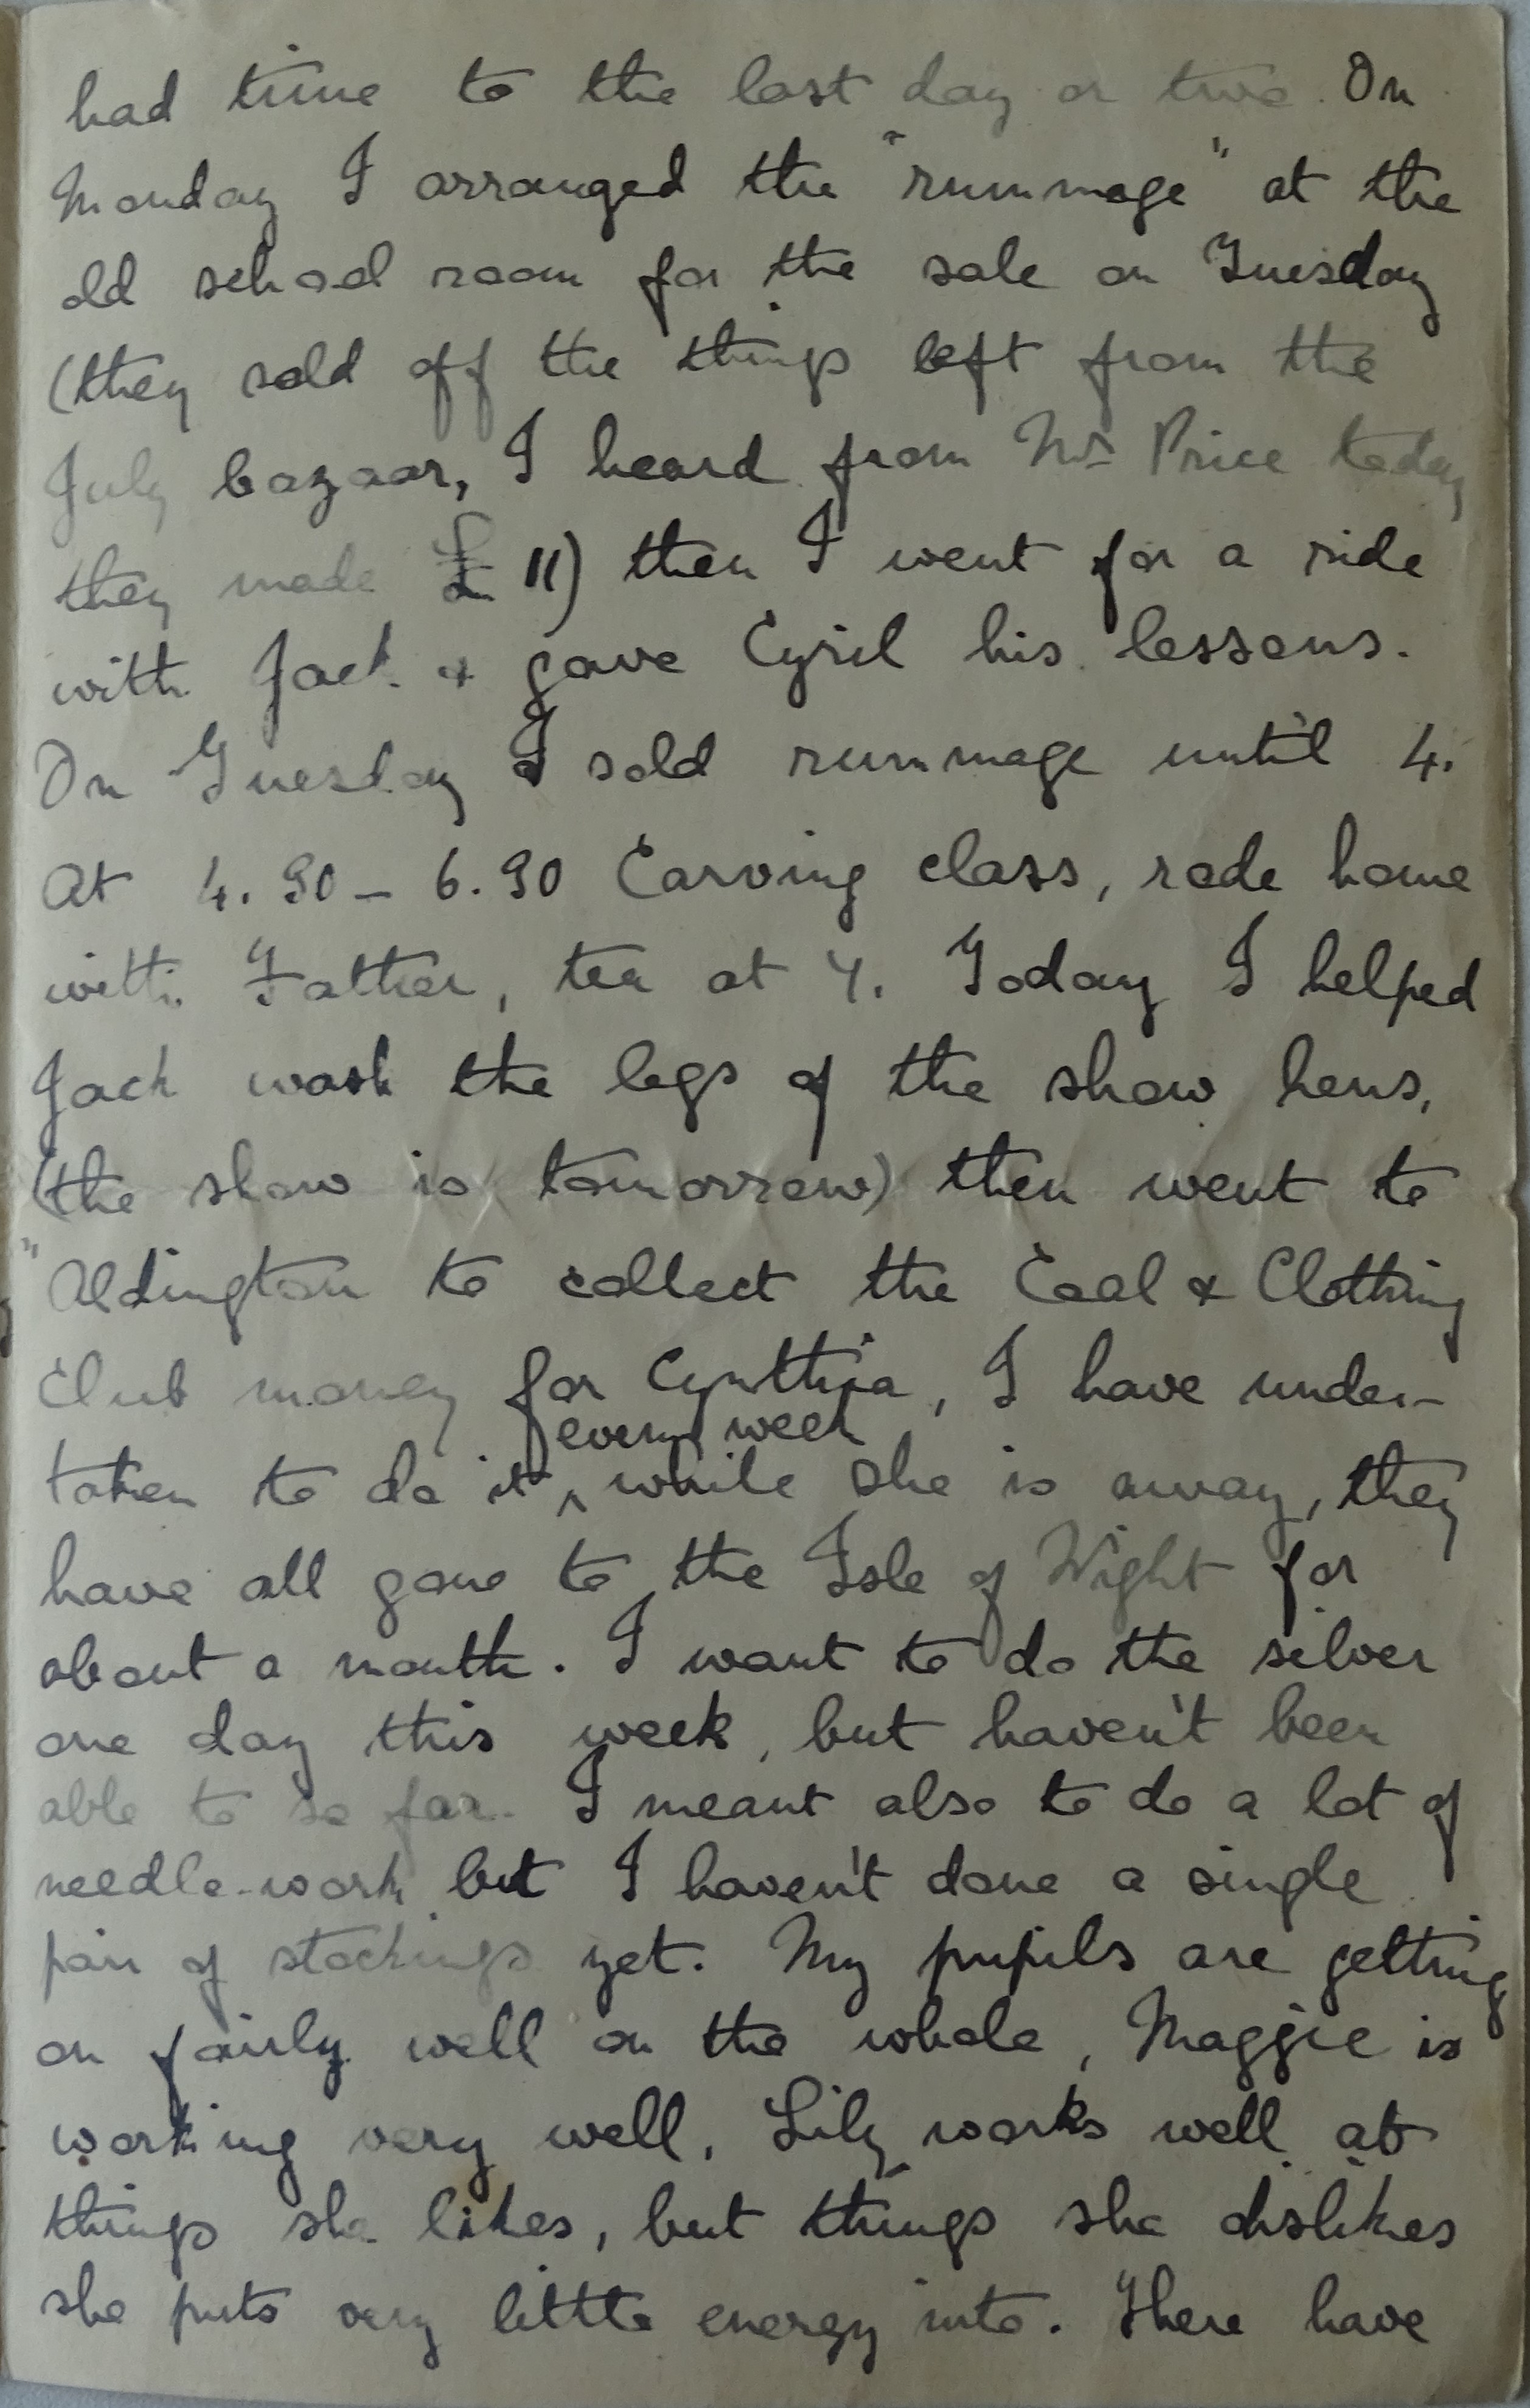 had time to the last day or two. On
Monday I arranged the "rummage" at the
old school room for the sale on Tuesday
(they sold off the things left from the
July bazaar, I heard from Mrs Price today
they made £11) then I went for a ride
with Jack & gave Cyril his lessons.
On Tuesday I sold rummage until 4.
At 4.30 - 6.30 Carving class, rode home
with Father, tea at 7. Today I helped
Jack wash the legs of the show hens,
(the show is tomorrow) then went to
Aldington to collect the Coal & Clothing
Club money for Cynthia, I have under-
every week
taken to do it ^ while she is away, they
have all gone to the Isle of Wight for
about a month. I want to do the silver
one day this week, but haven't been
able to so far. I meant also to do a lot of
needle-work but I haven't done a single
pair of stockings yet. My pupils are getting
on fairly well on the whole, Maggie is
working very well, Lily works well at
things she likes, but things she dislikes
she puts very little energy into. There have